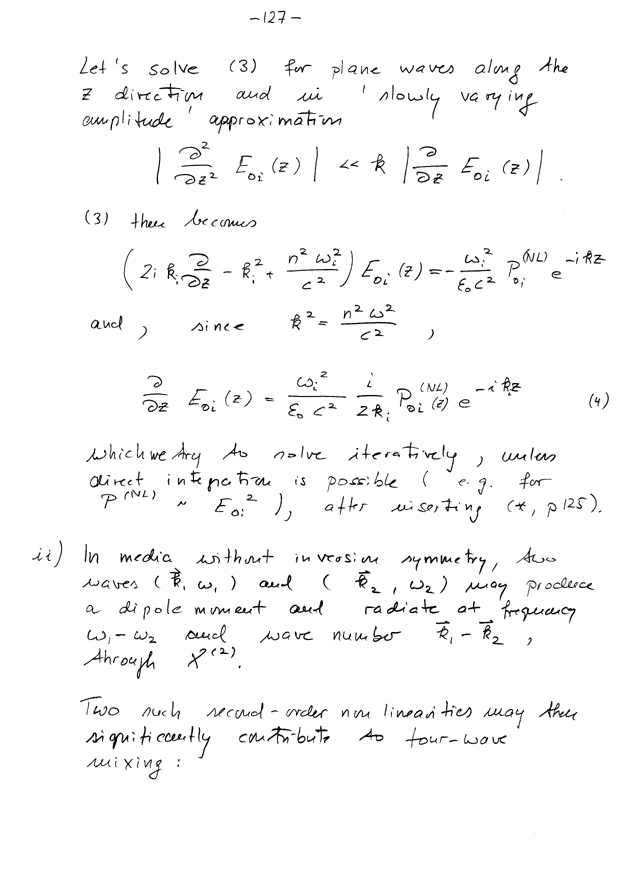 -127-
Let's solve (3) for plane waves along the
z direction and in 'slowly varying
amplitude' approximation
| ∂²/∂z² E₀ᵢ(z) | << k | ∂/∂z E₀ᵢ(z) | .
(3) then becomes
( 2i kᵢ ∂/∂z - kᵢ² + n² ωᵢ²/c² ) E₀ᵢ(z) = - ωᵢ²/ε₀c² P₀ᵢ^(NL) e^(-ikz)
and , since k² = n² ω²/c² ,
∂/∂z E₀ᵢ(z) = ωᵢ²/ε₀c² i/2kᵢ P₀ᵢ^(NL)(z) e^(-ikz) (4)
which we try to solve iteratively, unless
direct integration is possible (e.g. for
P^(NL) ~ E₀ᵢ²), after inserting (*, p125).
ii) In media without inversion symmetry, two
waves (k⃗₁, ω₁) and (k⃗₂, ω₂) may produce
a dipole moment and radiate at frequency
ω₁-ω₂ and wave number k⃗₁-k⃗₂ ,
through χ^(2).
Two such second-order non linearities may then
significantly contribute to four-wave
mixing :